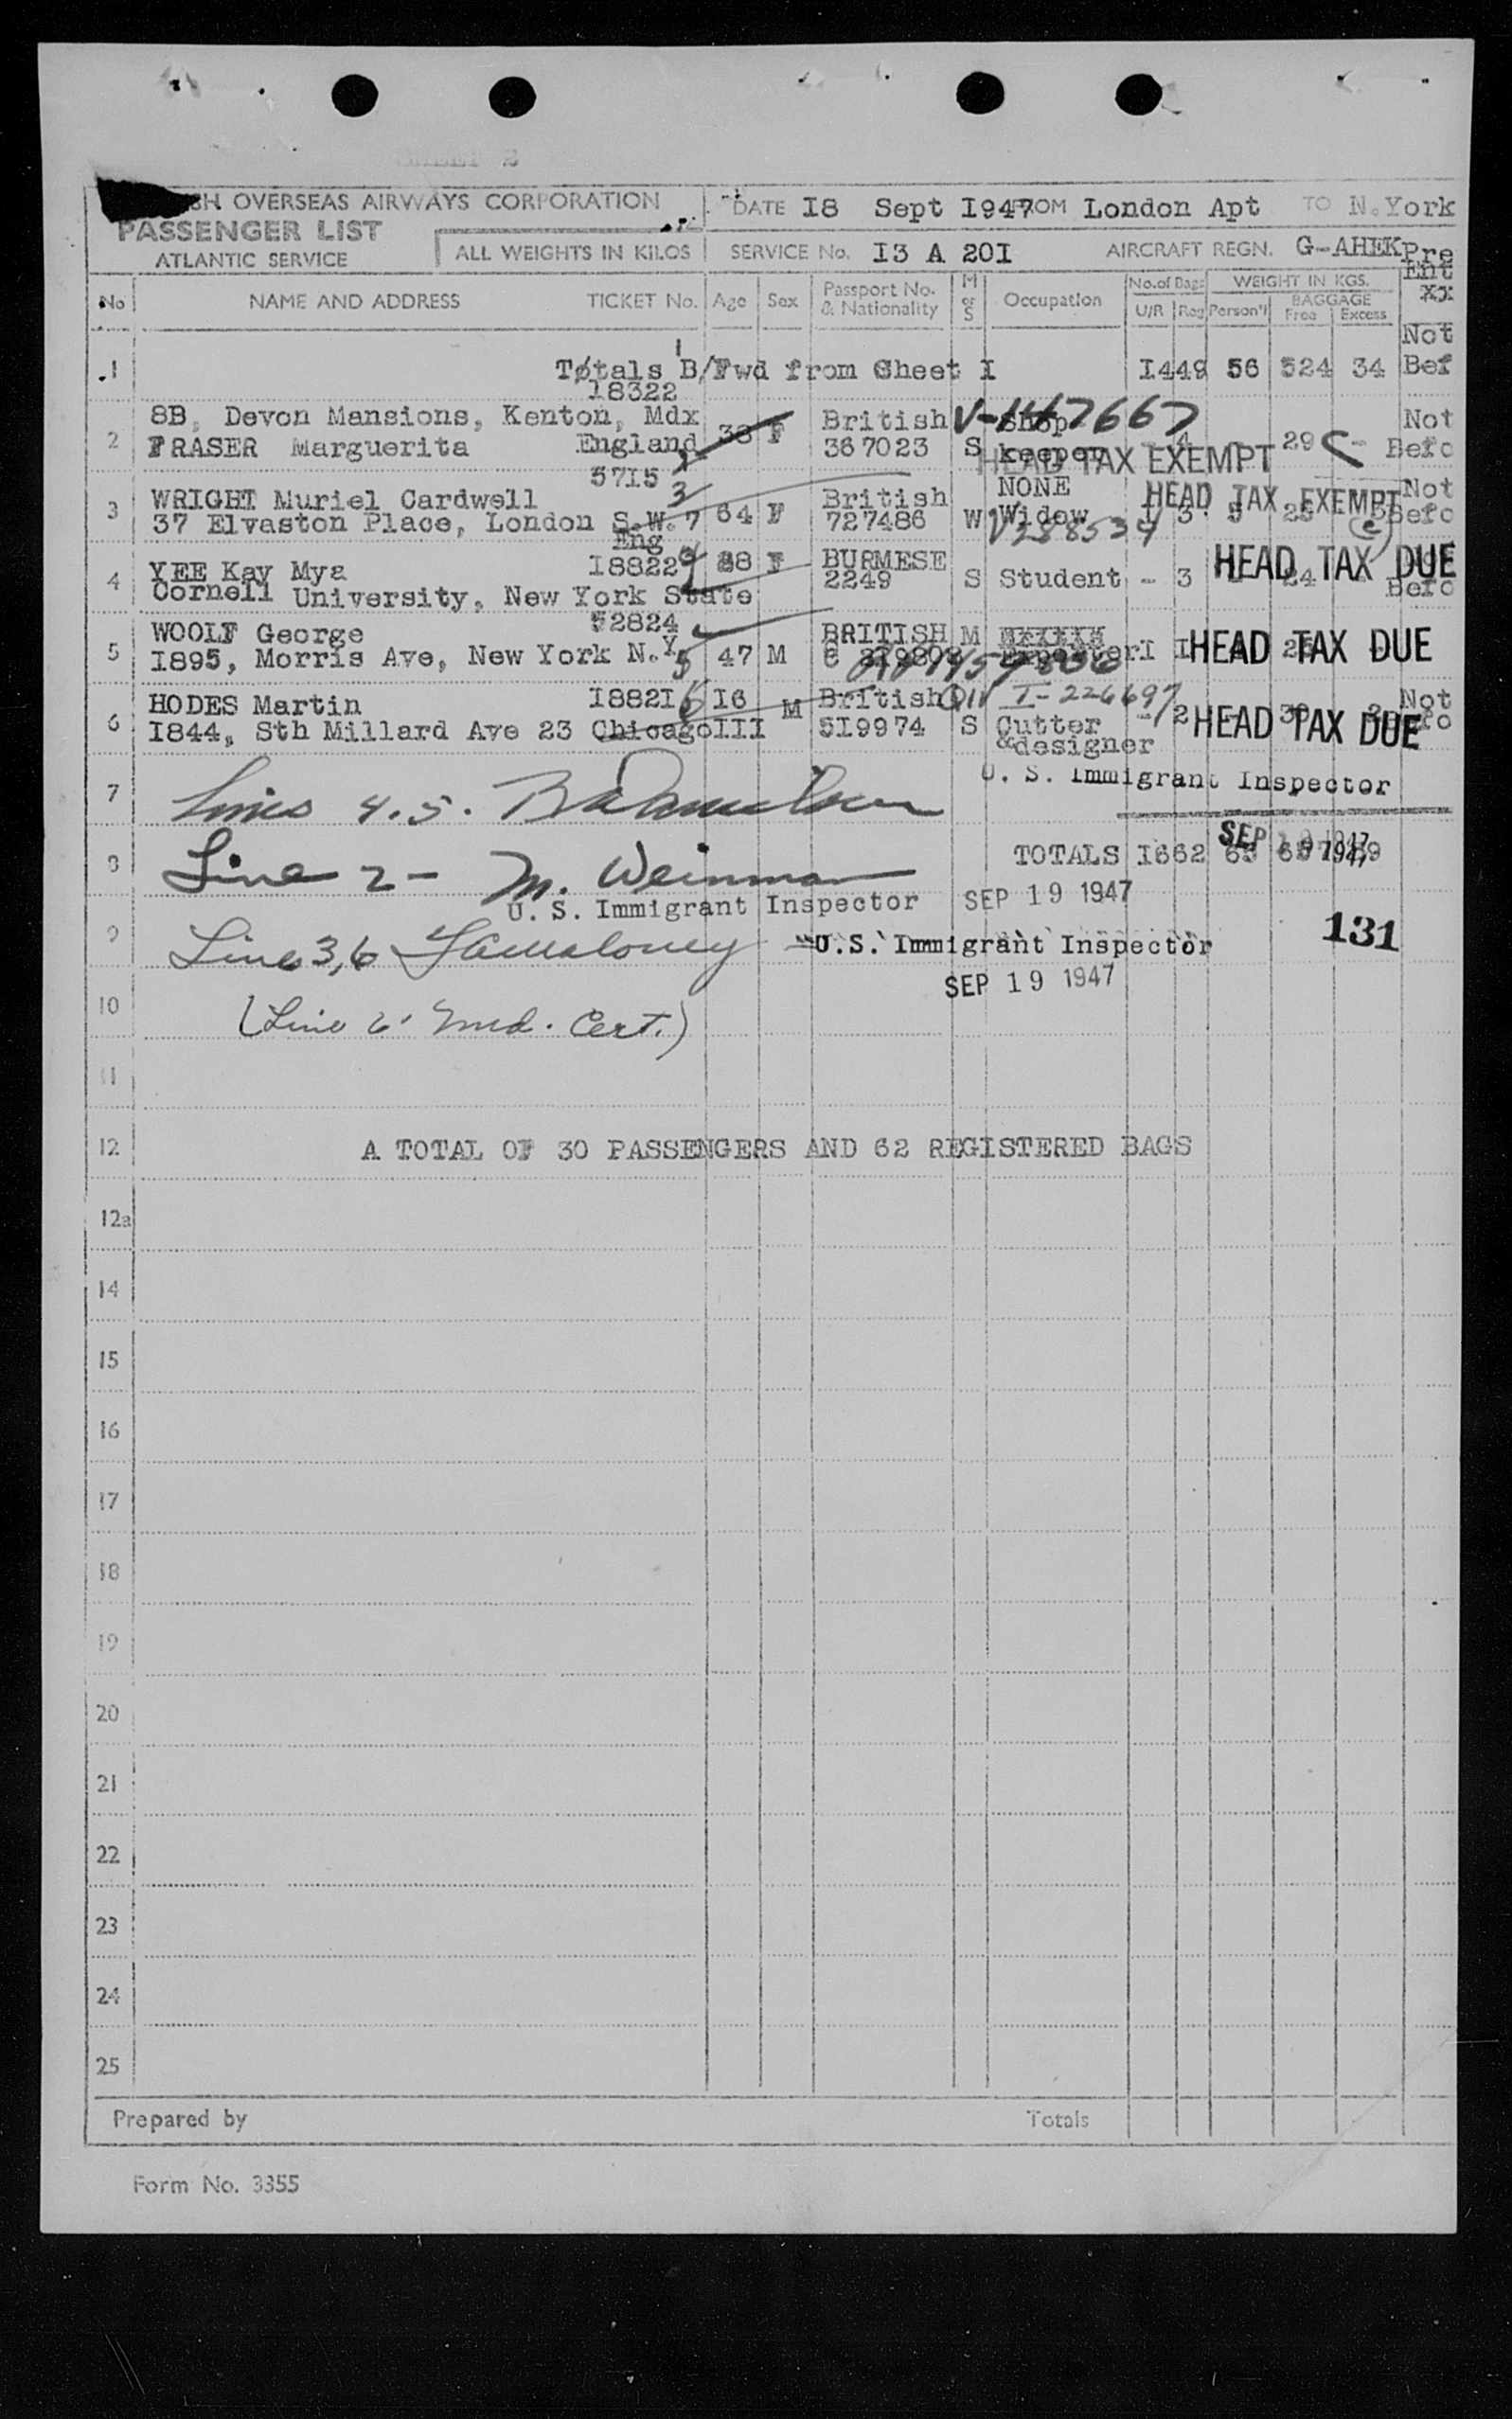 SHEET 2
SH OVERSEAS AIRWAYS CORPORATION
PASSENGER LIST
ATLANTIC SERVICE
ALL WEIGHTS IN KILOS
DATE I8 Sept I947 FROM London Apt TO N.York
SERVICE No. I3 A 20I AIRCRAFT REGN. G-AHEK
Pre
Ent
No NAME AND ADDRESS TICKET No. Age Sex Passport No. & Nationality M or S Occupation No.of Bags U/R Reg WEIGHT IN KGS. Person'l BAGGAGE Free Excess
1 Totals B/Fwd from Sheet I I4 49 56 524 34 Not Bef
I8322
2 8B, Devon Mansions, Kenton, Mdx British V-147667 Shop Not
FRASER Marguerita England 38 F 367023 S keeper - 4 29 - Befo
HEAD TAX EXEMPT
5715
3 WRIGHT Muriel Cardwell British NONE HEAD TAX EXEMPT Not
37 Elvaston Place, London S.W.7 64 F 727486 W Widow 3 Befo
Eng V288534
4 YEE Kay Mya I8822 F BURMESE HEAD TAX DUE
Cornell University, New York State 2249 S Student - 3 Befo
52824
5 WOOLF George BRITISH M
I895, Morris Ave, New York N.Y 47 M HEAD TAX DUE
6 HODES Martin I882I I6 M British QIV I-226697 Not
I844, Sth Millard Ave 23 Chicago III 5I9974 S Cutter - 2 HEAD TAX DUE
&designer
U. S. Immigrant Inspector
7 Lines 4.5.
SEP 19 1947
8 Line 2 - M. Weinman TOTALS I6 62
U. S. Immigrant Inspector SEP 19 1947
131
9 Lines 3,6 U.S. Immigrant Inspector
SEP 19 1947
10 (Line 6 Med. Cert.)
11
12 A TOTAL OF 30 PASSENGERS AND 62 REGISTERED BAGS
12a
14
15
16
17
18
19
20
21
22
23
24
25
Prepared by Totals
Form No. 3355